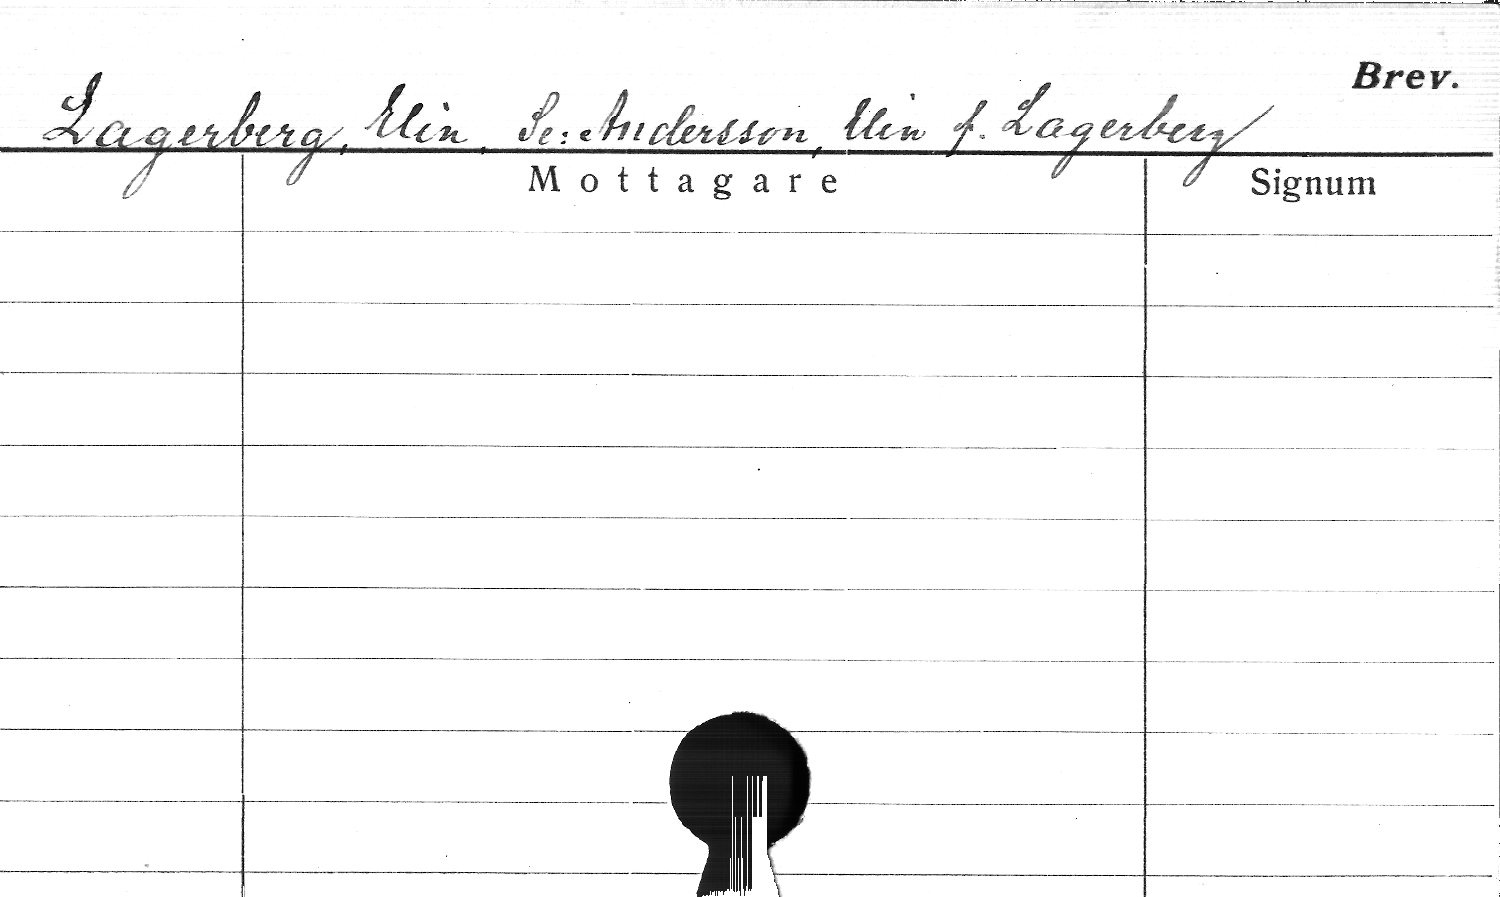 Brev.
Lagerberg, Elin. Se: Andersson, Elin f. Lagerberg
Mottagare Signum